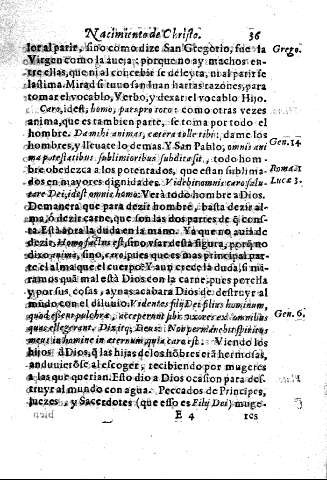 Nacimiento de Christo. 36
lor al parir, sino como dize San Gregorio, fue la Grego.
Virgen como la aueja: porque no ay machos en-
tre ellas, que ni al concebir se deleyta, ni al parir se
lastima. Mirad si tuuo san Iuan hartas razones, para
tomar el vocablo, Verbo, y dexar el vocablo Hijo.
Caro, id est, homo, pars pro toto: como otras vezes
anima, que es tambien parte, se toma por todo el
hombre. Da mihi animas, cætera tolle tibi: dame los
hombres, y lleuate lo demas. Y San Pablo, omnis ani Gen. 14
ma potestatibus sublimioribus subdita sit, todo hom-
bre obedezca a los potentados, que estan sublima- Roma. 1
dos en mayores dignidades. Videbit omnis caro salu- Lucæ 3.
tare Dei, id est omnis homo: Verà todo hombre a Dios.
Demanera que para dezir hombre, basta dezir al-
ma, ó dezir carne, que son las dos partes de q̃ cons-
ta. Està aora la duda en la mano. Ya que no auia de
dezir, Homo factus est, sino vsar desta figura, porq̃ no
dixo anima, sino, caro, pues que es mas principal par
te el alma que el cuerpo? Y aun crece la duda, si mi-
ramos quã mal està Dios con la carne, pues por ella
y por sus cosas, aynas acabara Dios de destruyr al
mundo con el diluuio. Videntes filij Dei filias hominum,
quod essent pulchræ, acceperunt sibi vxores ex omnibus Gen. 6.
quas elegerant. Dixitq; Deus: Non permanebit spiritus
meus in homine in æternum, quia caro est. Viendo los
hijos de Dios, q̃ las hijas de los hõbres erã hermosas,
anduuierõse al escoger, recibiendo por mugeres
a las que querian. Esto dio a Dios ocasion para des-
truyr al mundo con agua. Pecados de Principes,
Iuezes, y Sacerdotes (que esso es Filij Dei) muge-
E 4 res